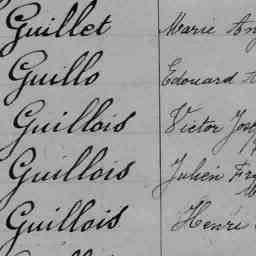 Guillet Marie
Guillo Edouard
Guillois Victor
Guillois Julien
Guillois Henri